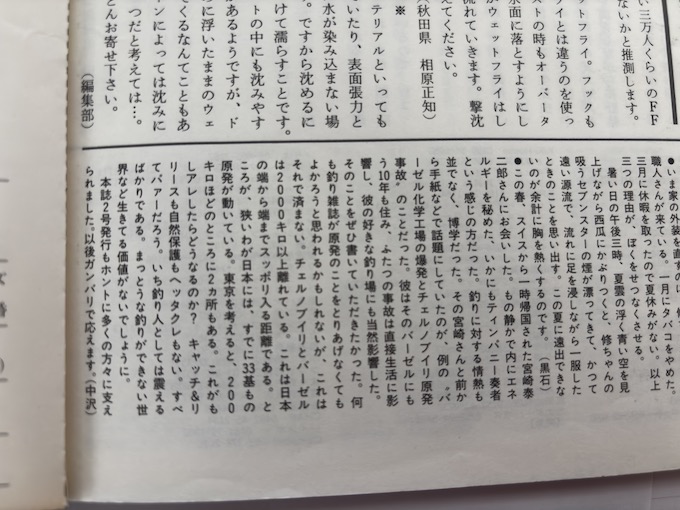 い三万人くらいのFF
ないかと推測します。
ットフライ。フックも
イとは違うのを使っ
ストの時もオーバータ
水面に落とすようにし
ウェットフライはし
流れていきます。撃沈
えてください。
秋田県 相原正知)
※
テリアルといっても
いたり、表面張力と
水が染み込まない場
す。ですから沈めるに
けて濡らすことです。
トの中にも沈みやす
あるようですが、ド
に浮いたままのウェ
くるなんてこともあ
ンによっては沈みに
つだと考えては…。
どんお寄せ下さい。
(編集部)
●いま家の外装を直すのに、
職人さんが来ている。一月にタバコをやめた。
三月に休暇を取ったので夏休みがない。以上
三つの理由が、ぼくをせつなくさせる。
暑い日の午後三時、夏雲の浮く青い空を見
上げながら西瓜にかぶりつくと、修ちゃんの
吸うセブンスターの煙が漂ってきて、かつて
遠い源流で、流れに足を浸しながら一服した
ときのことを思い出す。この夏に遠出できな
いのが余計に胸を熱くするのです。(黒石)
●この春、スイスから一時帰国された宮崎泰
二郎さんにお会いした。もの静かで内にエネ
ルギーを秘めた、いかにもティンパニー奏者
という感じの方だった。釣りに対する情熱も
並でなく、博学だった。その宮崎さんと前か
ら手紙などで話題にしていたのが、例の〝バ
ーゼル化学工場の爆発とチェルノブイリ原発
事故〟のことだった。彼はそのバーゼルにも
う10年も住み、ふたつの事故は直接生活に影
響し、彼の好きな釣り場にも当然影響した。
そのことをぜひ書いていただきたかった。何
も釣り雑誌が原発のことをとりあげなくても
よかろうと思われるかもしれないが、これは
それで済まない。チェルノブイリとバーゼル
は2000キロ以上離れている。これは日本
の端から端までスッポリ入る距離である。と
ころが、狭いわが日本には、すでに33基もの
原発が動いている。東京を考えると、200
キロほどのところに2ヵ所もある。これがも
しアレしたらどうなるのか? キャッチ&リ
リースも自然保護もヘッタクレもない。すべ
てバァーだろう。いち釣り人としては震える
ばかりである。まっとうな釣りができない世
界など生きてる価値がないでしょうに。
本誌2号発行もホントに多くの方々に支え
られました。以後ガンバリで応えます。(中沢)